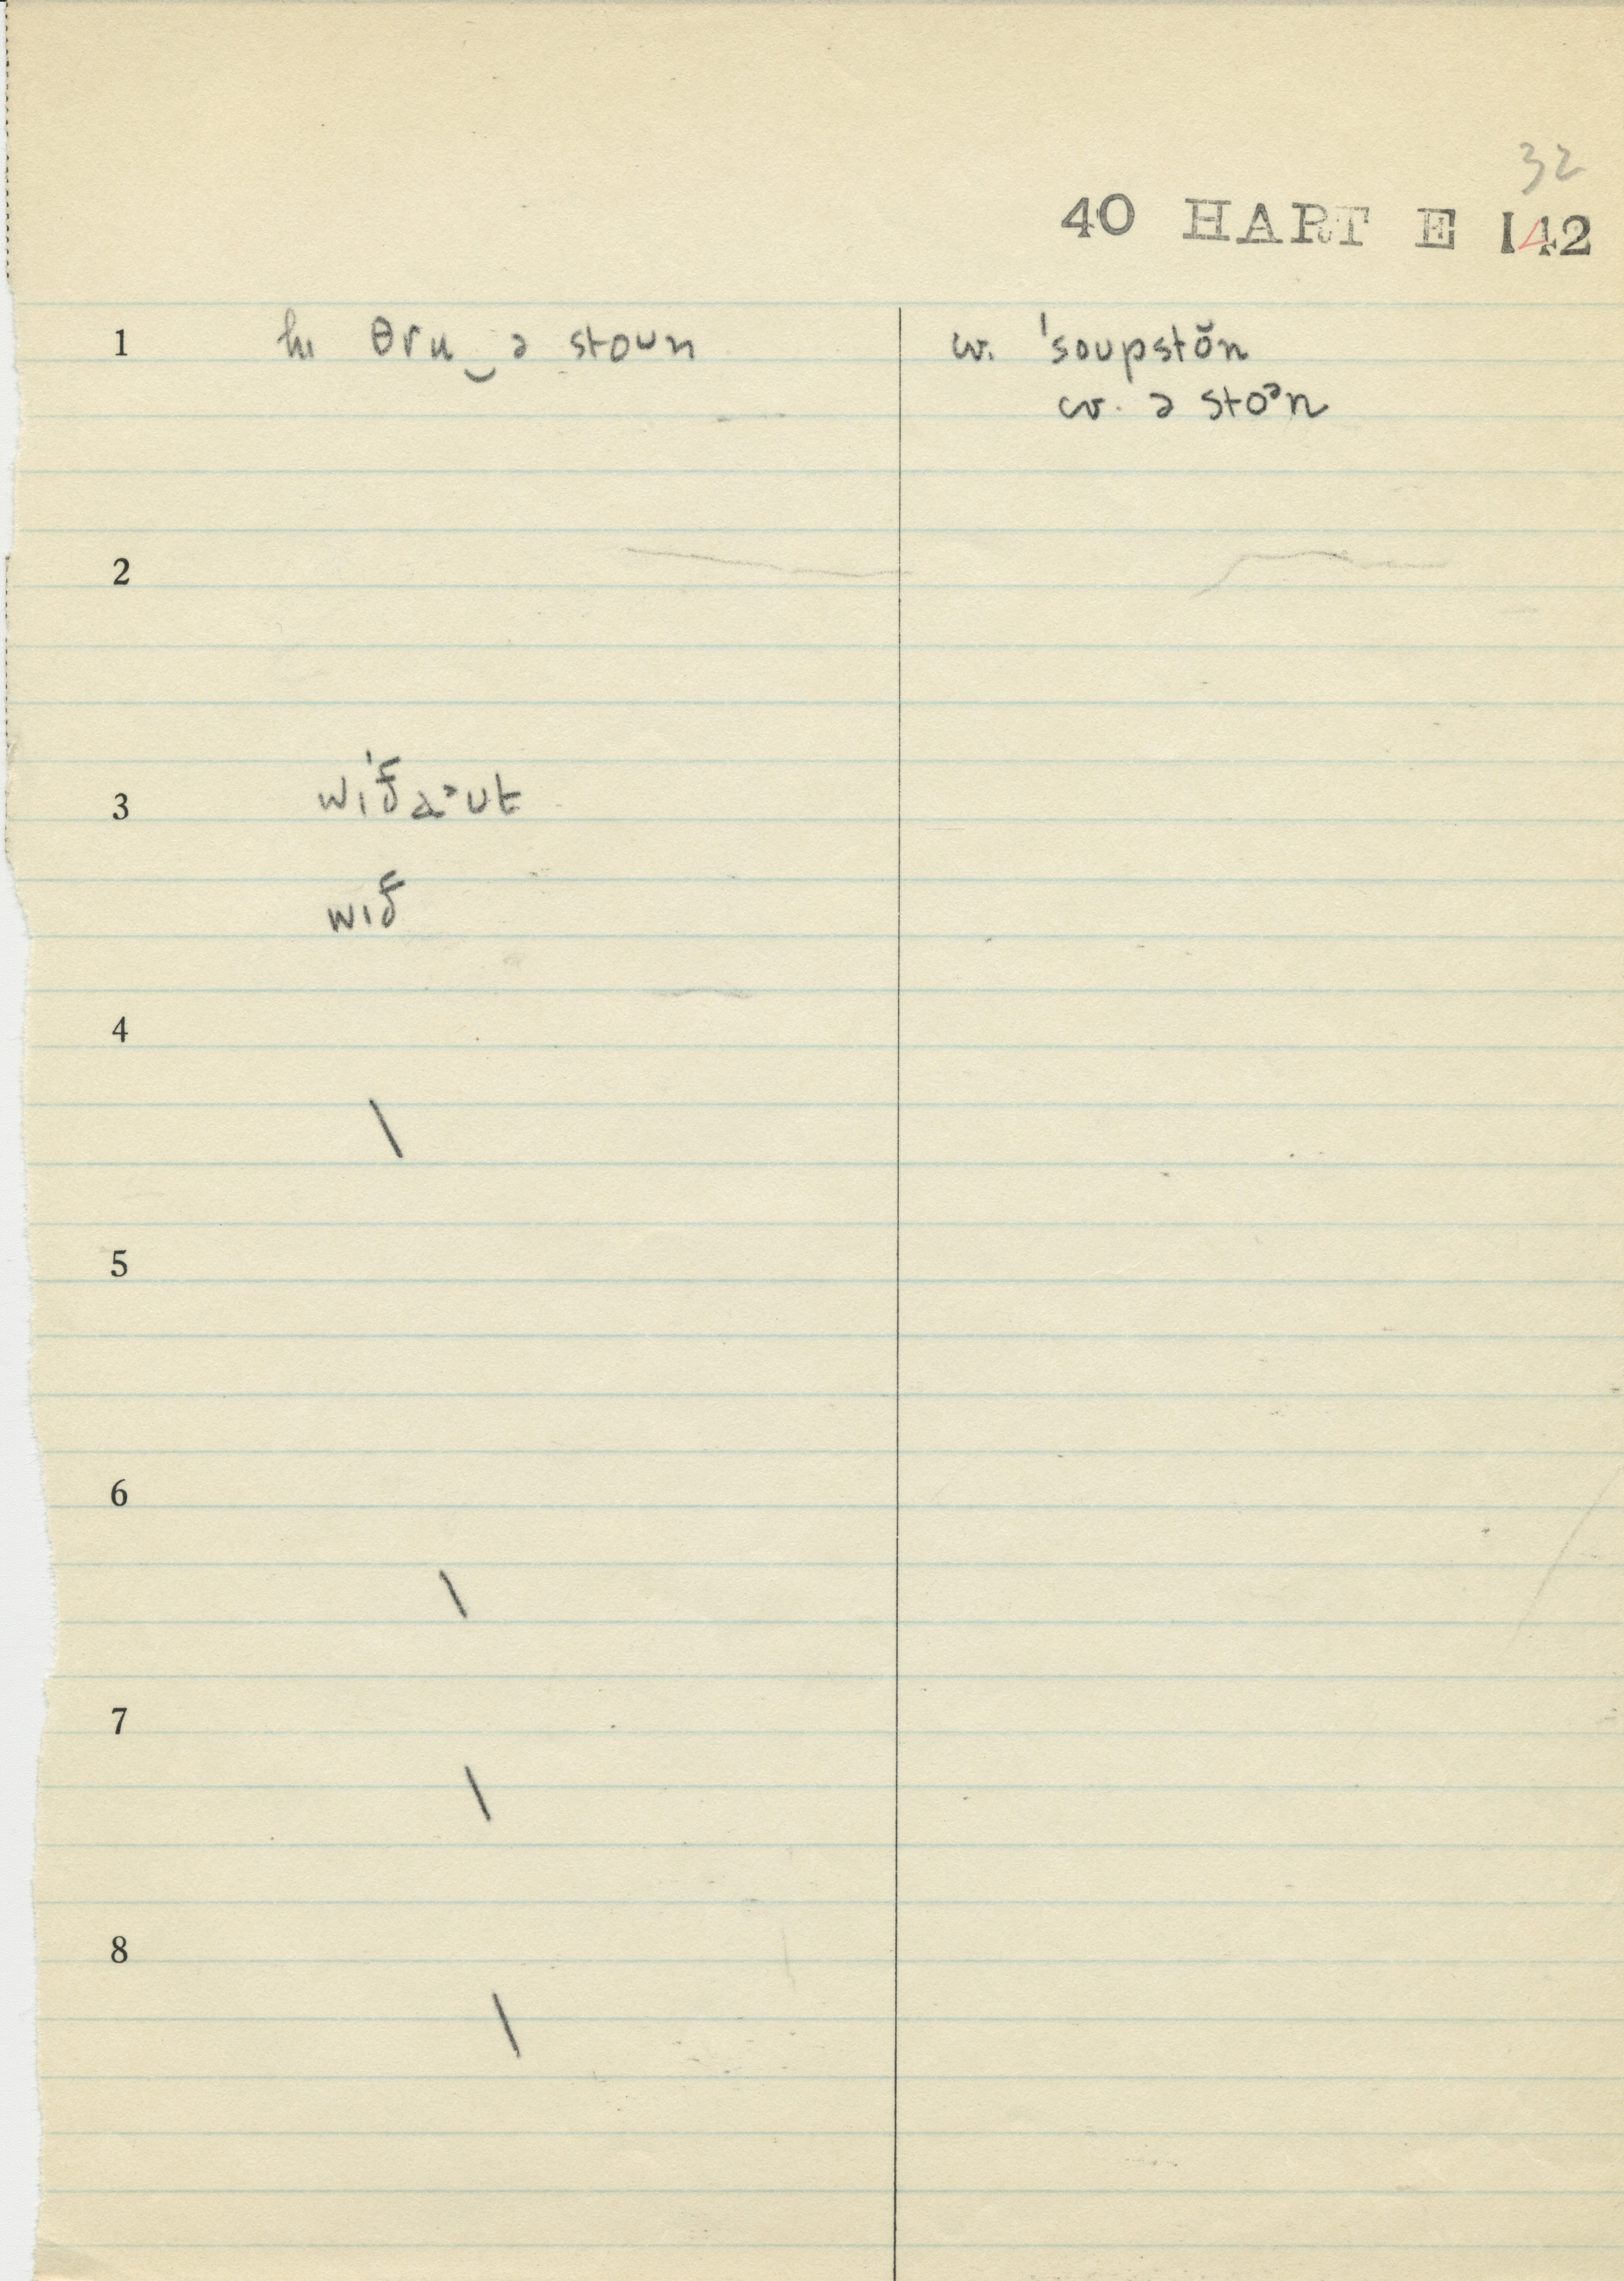 32
40 HART E 142
1 hɪ θru‿ə stoun cv. ˈsoupstŏn
cv. ə stoᵊn
2
3
wið
4
5
6
7
8